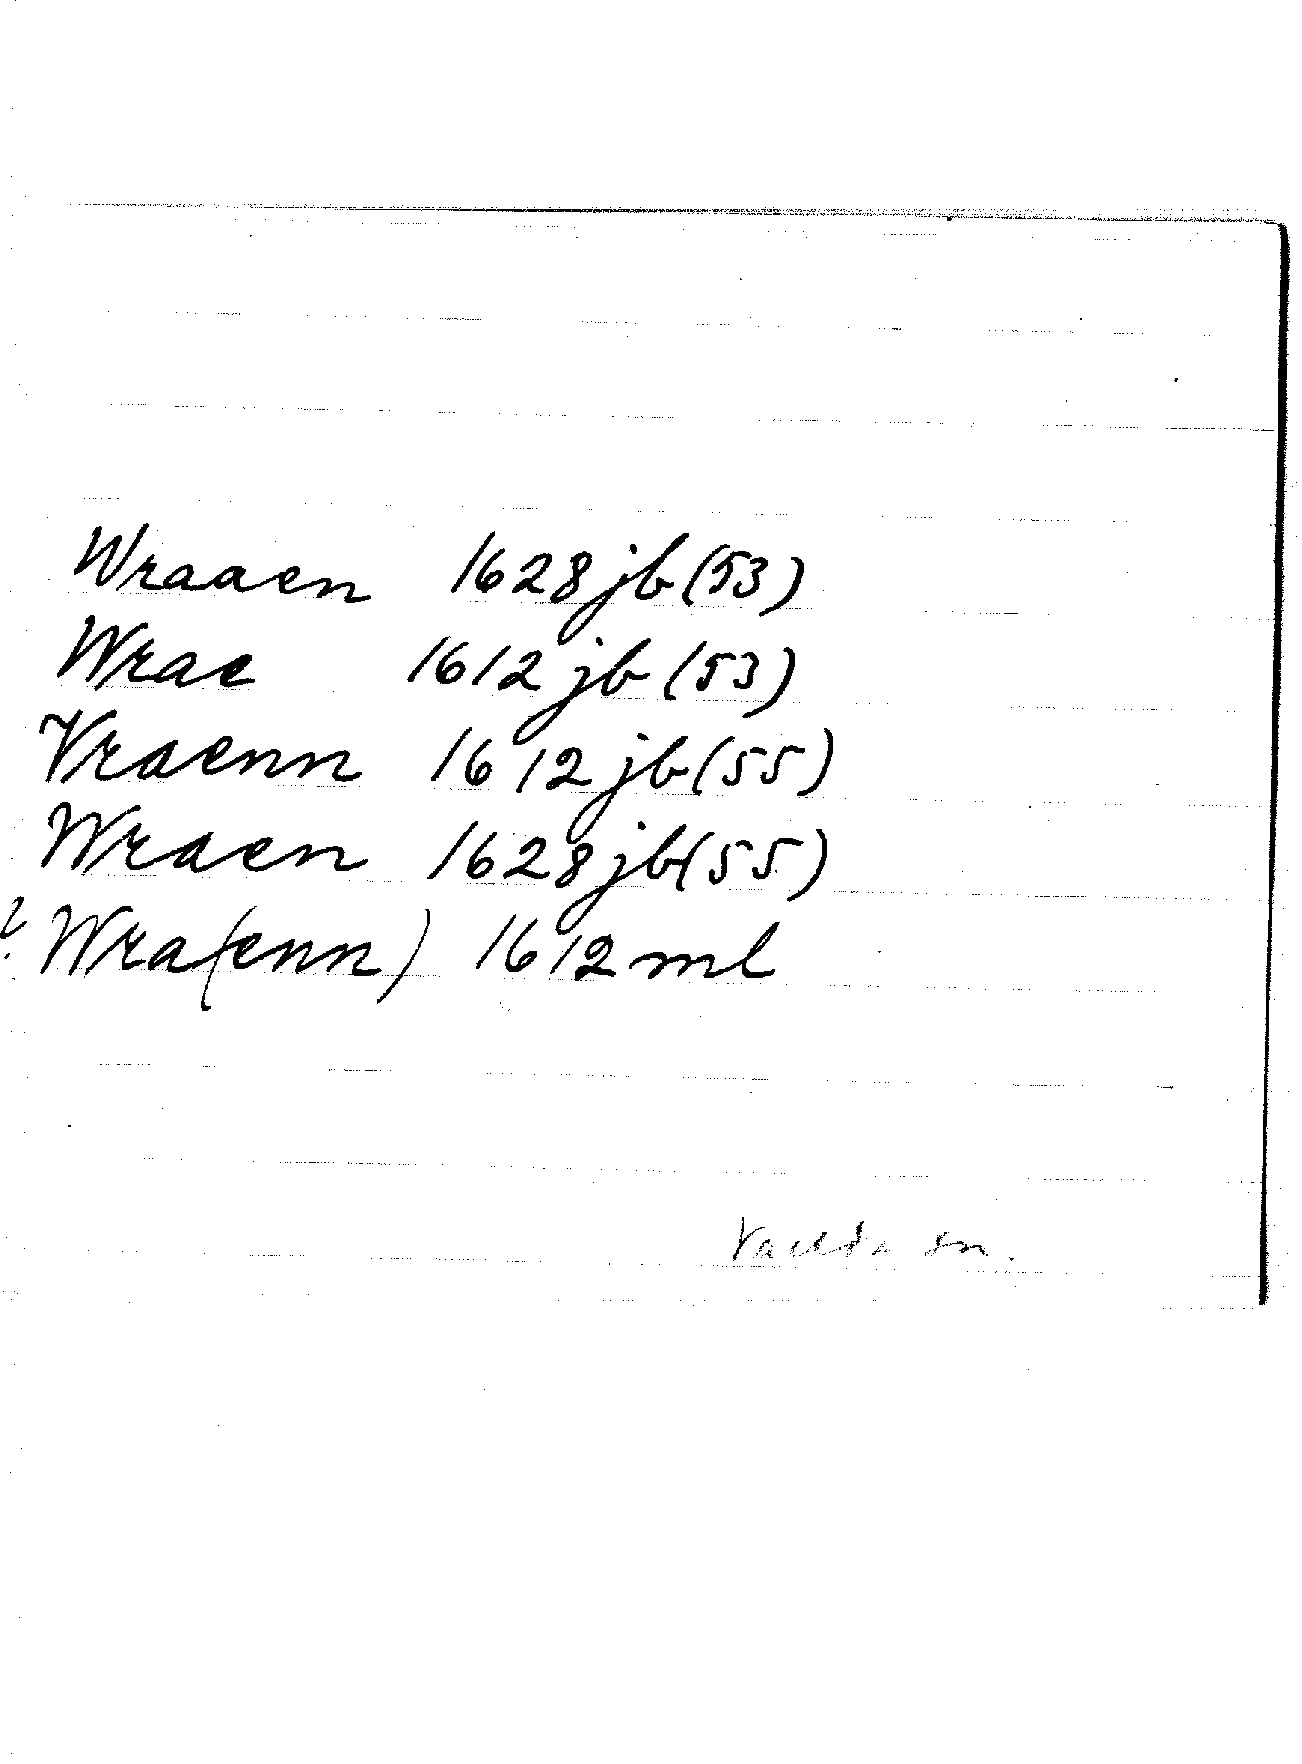 Wraaen 1628 jb (53)
Wrae 1612 jb (53)
Vraenn 1612 jb (55)
Wraen 1628 jb (55)
? Wra(enn) 1612 ml
sn.